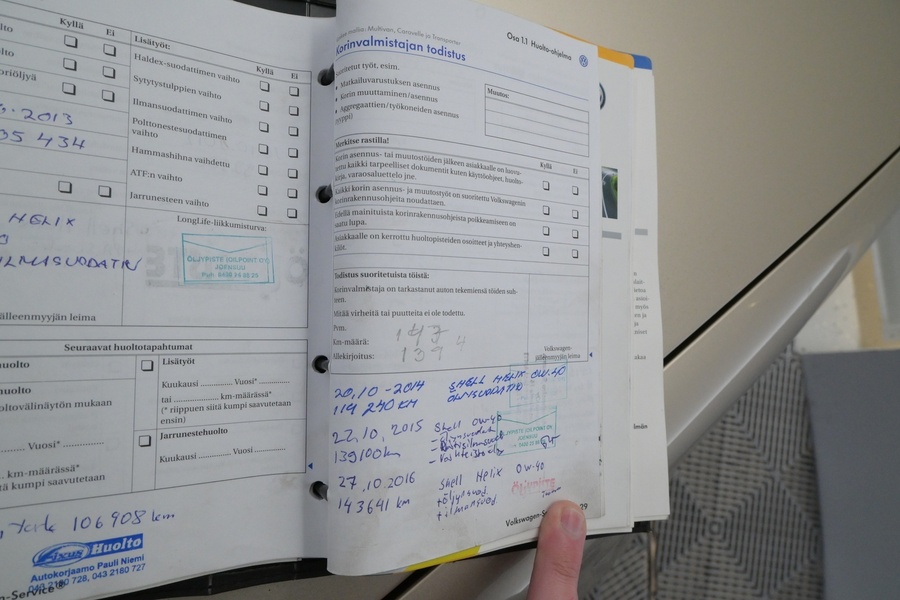 Kyllä Ei
Lisätyöt:
Haldex-suodattimen vaihto
Kyllä Ei
Sytytystulppien vaihto
Ilmansuodattimen vaihto
Polttonestesuodattimen
vaihto
Hammashihna vaihdettu
ATF:n vaihto
Jarrunesteen vaihto
2013
35 434
HELIX
LongLife-liikkumisturva:
ÖLJYPISTE (OILPOINT OY)
JOENSUU
älleenmyyjän leima
Seuraavat huoltotapahtumat
huolto
Lisätyöt
Kuukausi ............ Vuosi* ............
tai ............ km-määrässä*
(* riippuen siitä kumpi saavutetaan
ensin)
Jarrunestehuolto
Kuukausi ............ Vuosi ............
oltovälinäytön mukaan
Vuosi* ............
km-määrässä*
tä kumpi saavutetaan
106908 km
Huolto
Autokorjaamo Pauli Niemi
043 2180 728, 043 2180 727
n-Service®
Osa 1.1 Huolto-ohjelma
Multivan, Caravelle ja Transporter
Korinvalmistajan todistus
Suoritetut työt, esim.
• Matkailuvarustuksen asennus
• Korin muuttaminen/asennus
• Aggregaattien/työkoneiden asennus
(tyyppi)
Muutos:
Merkitse rastilla!
Kyllä Ei
Korin asennus- tai muutostöiden jälkeen asiakkaalle on luovu-
tettu kaikki tarpeelliset dokumentit kuten käyttöohjeet, huolto-
kirja, varaosaluettelo jne.
Kaikki korin asennus- ja muutostyöt on suoritettu Volkswagenin
korinrakennusohjeita noudattaen.
Edellä mainituista korinrakennusohjeista poikkeamiseen on
saatu lupa.
Asiakkaalle on kerrottu huoltopisteiden osoitteet ja yhteyshen-
kilöt.
Todistus suoritetuista töistä:
Korinvalmistaja on tarkastanut auton tekemiensä töiden suh-
teen.
Mitään virheitä tai puutteita ei ole todettu.
Pvm.
Km-määrä:
Allekirjoitus:
147
139 4
Volkswagen-
jälleenmyyjän leima
20.10-2014 SHELL HELIX 0W.40
119 240 KM ÖLJYNSUODATIN
22.10.2015 Shell 0W-40
139100km
ÖLJYPISTE (OILPOINT OY)
JOENSUU
27.10.2016 Shell Helix 0W-40
143641 km +öljynsuod.
+ilmansuod.
29